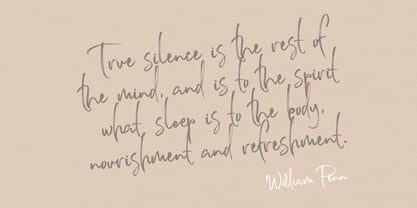 True silence is the rest of
the mind, and is to the spirit
what sleep is to the body,
nourishment and refreshment.
William Penn